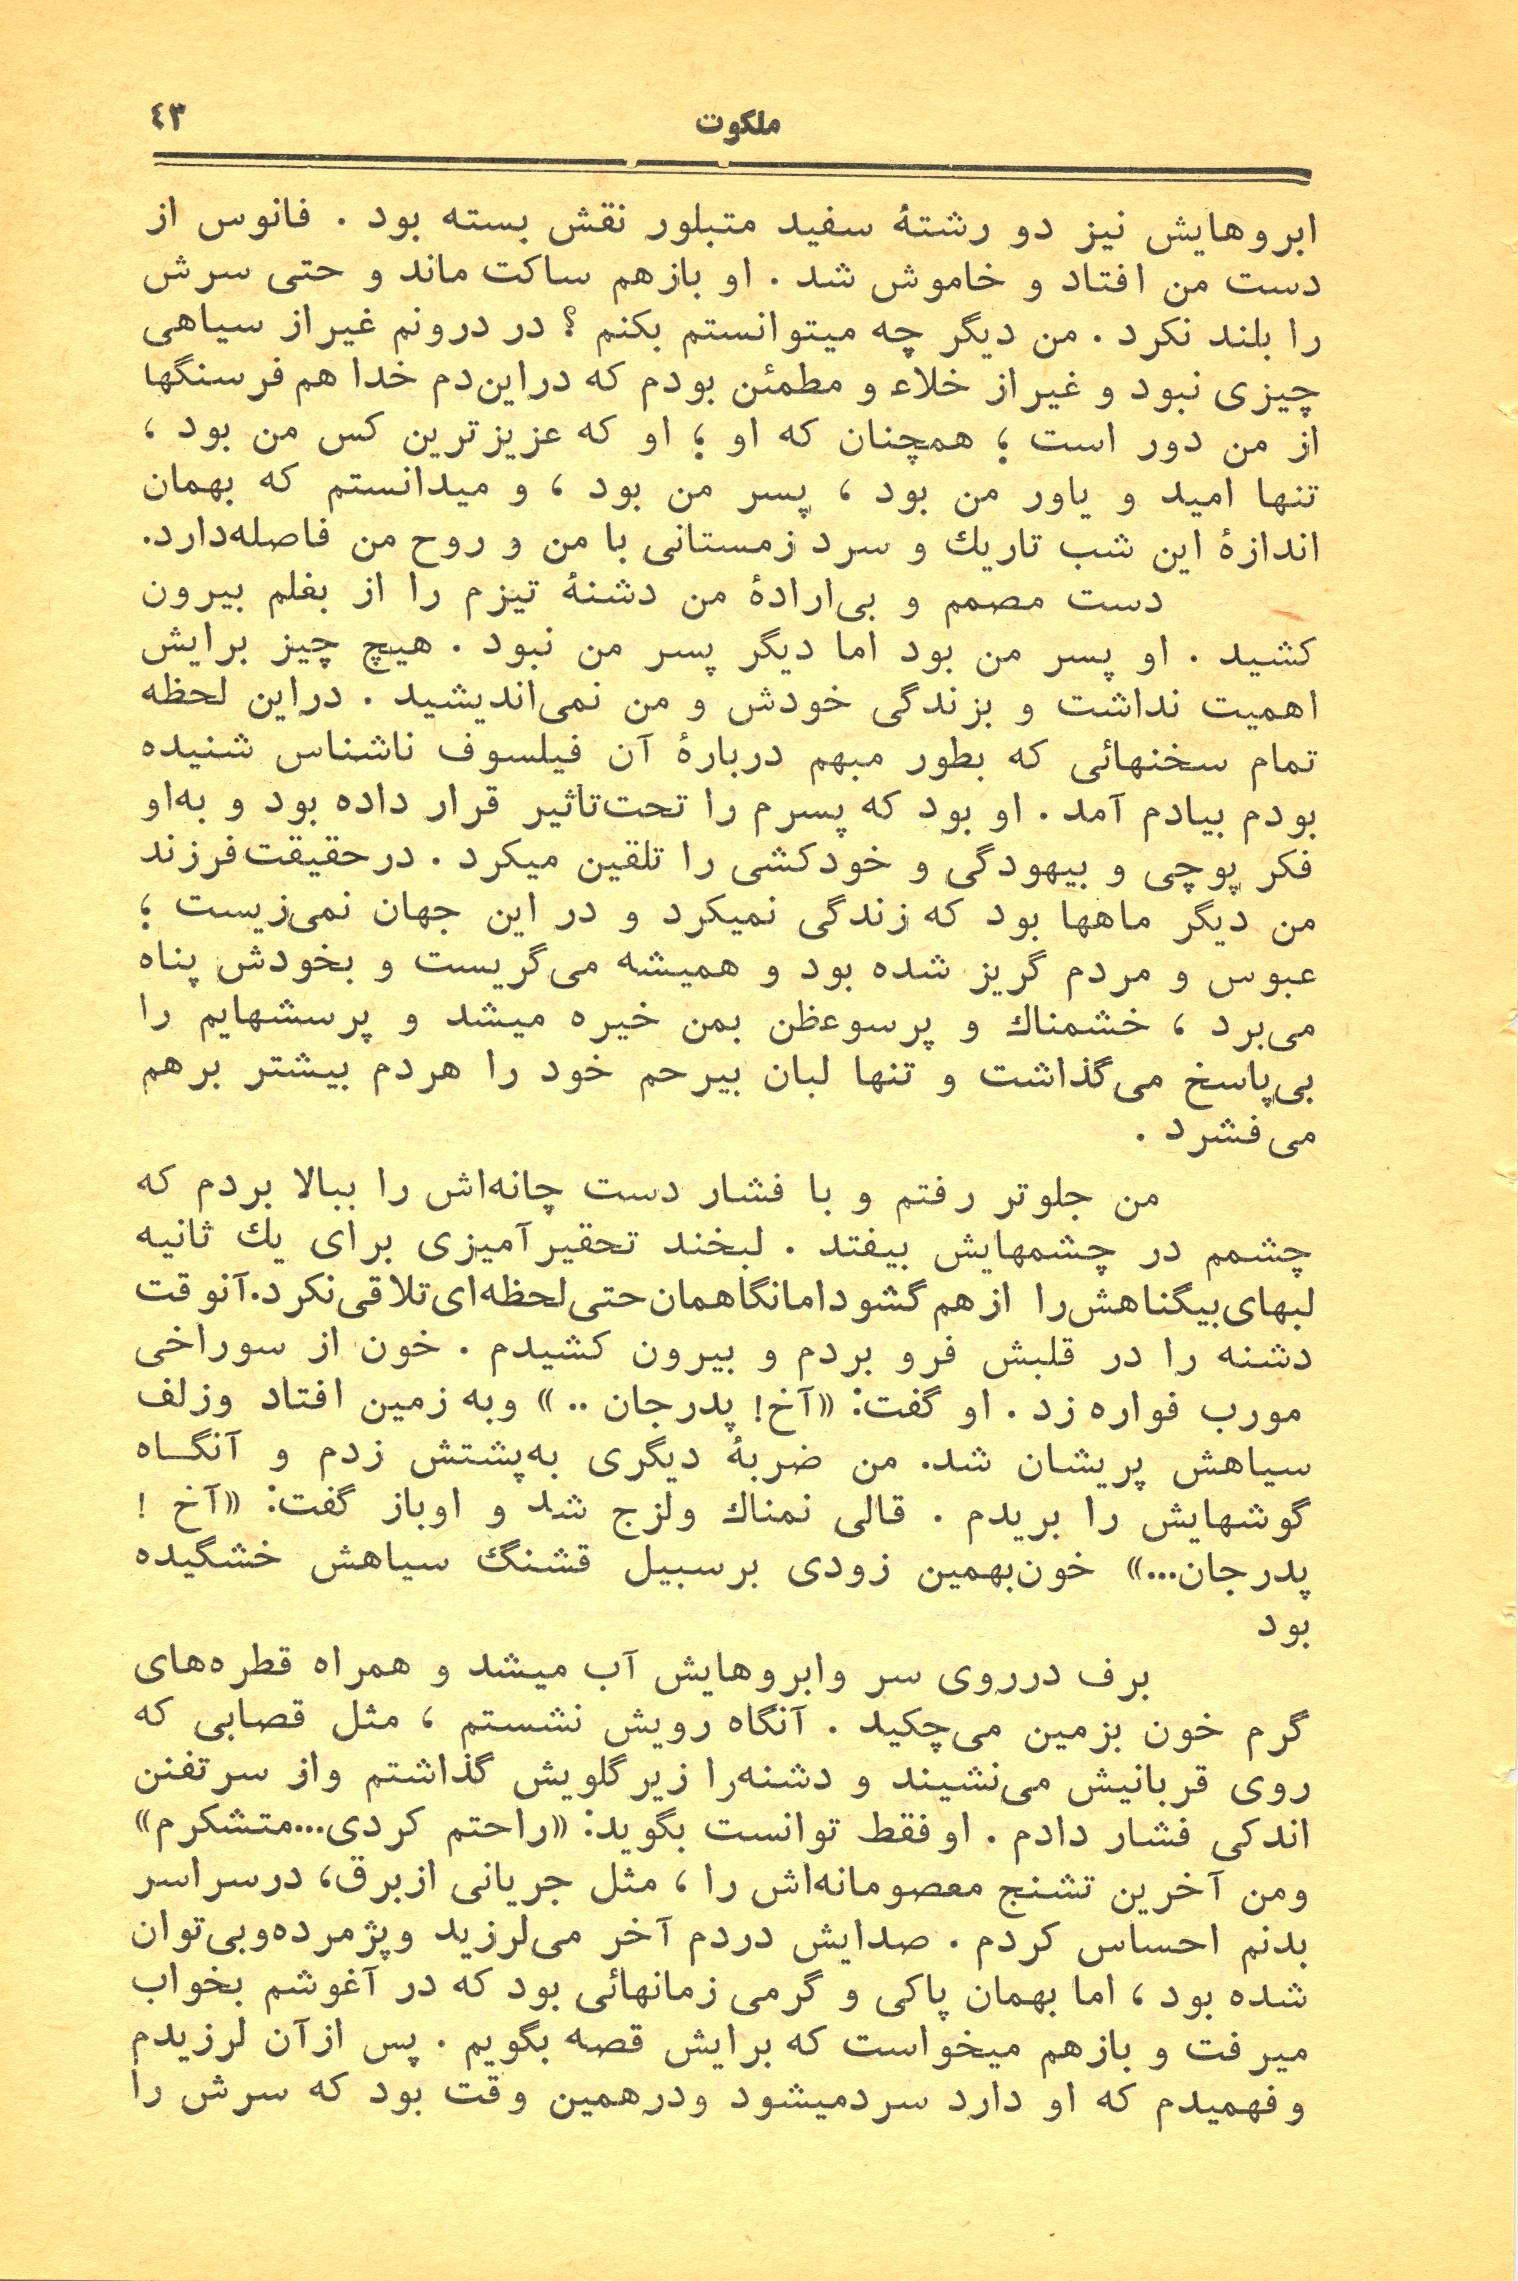 ملکوت
٤٣
ابروهایش نیز دو رشتهٔ سفید متبلور نقش بسته بود . فانوس از
دست من افتاد و خاموش شد . او بازهم ساکت ماند و حتی سرش
را بلند نکرد . من دیگر چه میتوانستم بکنم ؟ در درونم غیراز سیاهی
چیزی نبود و غیراز خلاء و مطمئن بودم که دراین‌دم خدا هم فرسنگها
از من دور است ؛ همچنان که او ؛ او که عزیزترین کس من بود ،
تنها امید و یاور من بود ، پسر من بود ، و میدانستم که بهمان
اندازهٔ این شب تاریك و سرد زمستانی با من و روح من فاصله‌دارد.
دست مصمم و بی‌ارادهٔ من دشنهٔ تیزم را از بغلم بیرون
کشید . او پسر من بود اما دیگر پسر من نبود . هیچ چیز برایش
اهمیت نداشت و بزندگی خودش و من نمی‌اندیشید . دراین لحظه
تمام سخنهائی که بطور مبهم دربارهٔ آن فیلسوف ناشناس شنیده
بودم بیادم آمد . او بود که پسرم را تحت‌تاثیر قرار داده بود و به‌او
فکر پوچی و بیهودگی و خودکشی را تلقین میکرد . درحقیقت‌فرزند
من دیگر ماهها بود که زندگی نمیکرد و در این جهان نمی‌زیست ؛
عبوس و مردم گریز شده بود و همیشه می‌گریست و بخودش پناه
می‌برد ، خشمناك و پرسوءظن بمن خیره میشد و پرسشهایم را
بی‌پاسخ می‌گذاشت و تنها لبان بیرحم خود را هردم بیشتر برهم
می‌فشرد .
من جلوتر رفتم و با فشار دست چانه‌اش را ببالا بردم که
چشمم در چشمهایش بیفتد . لبخند تحقیرآمیزی برای یك ثانیه
لبهای‌بیگناهش‌را ازهم‌گشود‌اما‌نگاهمان‌حتی‌لحظه‌ای‌تلاقی‌نکرد.آنوقت
دشنه را در قلبش فرو بردم و بیرون کشیدم . خون از سوراخی
مورب فواره زد . او گفت: «آخ! پدرجان .. » وبه زمین افتاد وزلف
سیاهش پریشان شد. من ضربهٔ دیگری به‌پشتش زدم و آنگـاه
گوشهایش را بریدم . قالی نمناك ولزج شد و اوباز گفت: «آخ !
پدرجان...» خون‌بهمین زودی برسبیل قشنگ سیاهش خشگیده
بود
برف درروی سر وابروهایش آب میشد و همراه قطره‌های
گرم خون بزمین می‌چکید . آنگاه رویش نشستم ، مثل قصابی که
روی قربانیش می‌نشیند و دشنه‌را زیرگلویش گذاشتم واز سرتفنن
اندکی فشار دادم . اوفقط توانست بگوید: «راحتم کردی...متشکرم»
ومن آخرین تشنج معصومانه‌اش را ، مثل جریانی ازبرق، درسراسر
بدنم احساس کردم . صدایش دردم آخر می‌لرزید وپژمرده‌وبی‌توان
شده بود ، اما بهمان پاکی و گرمی زمانهائی بود که در آغوشم بخواب
میرفت و بازهم میخواست که برایش قصه بگویم . پس ازآن لرزیدم
وفهمیدم که او دارد سردمیشود ودرهمین وقت بود که سرش را